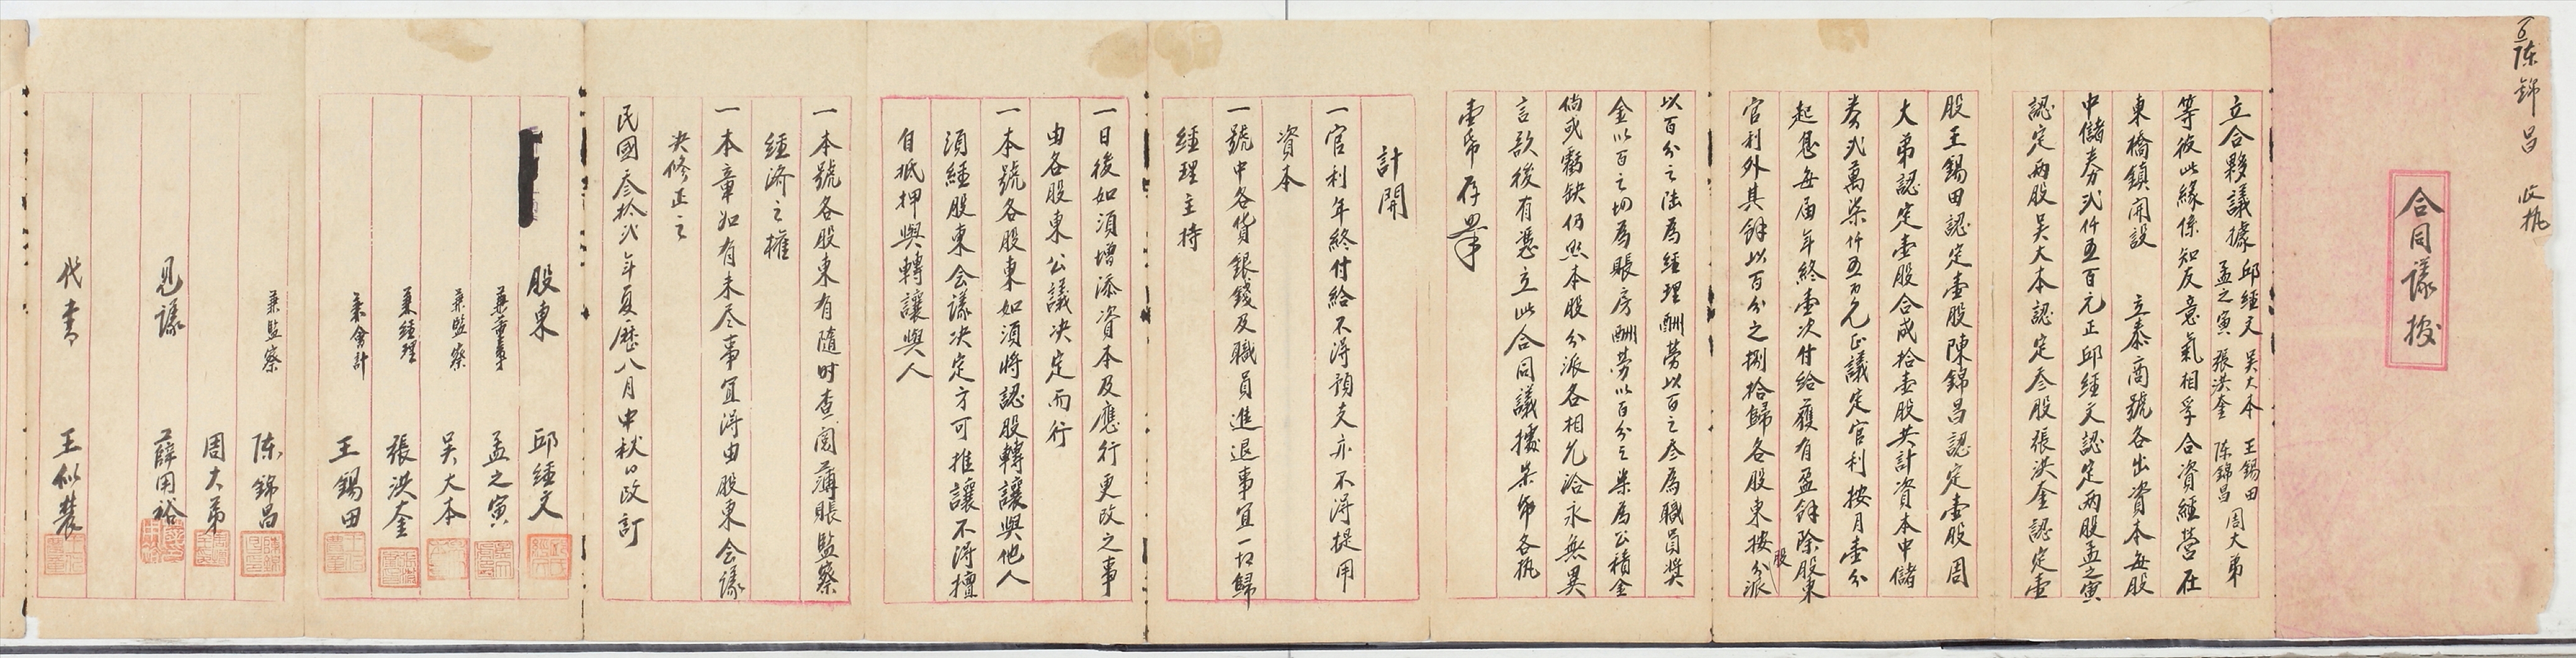 陈錦昌 收执
合同議據
立合夥議據邱經文 吴大本 王錫田 周大弟
孟之寅 張洪奎 陈錦昌
等彼此緣係知友意氣相孚合資經營在
東橋鎮開設 立泰商號各出資本每股
中儲券弍仟五百元正邱經文認定兩股孟之寅
認定兩股吴大本認定叁股張洪奎認定壹
股王錫田認定壹股陳錦昌認定壹股周
大弟認定壹股合成拾壹股共計資本中儲
券弍萬柒仟五百元正議定官利按月壹分
起息每届年終壹次付給獲有盈餘除股東
官利外其餘以百分之捌拾歸各股東按股分派
以百分之陆為經理酬勞以百之叁為職員獎
金以百之四為賬房酬勞以百分之柒為公積金
倘或虧缺仍照本股分派各相允洽永無異
言欲後有憑立此合同議據柒帋各执
壹帋存畢
計開
一官利年終付給不得預支亦不得提用
資本
一號中各貨銀錢及職員進退事宜一切歸
經理主持
一日後如須增添資本及應行更改之事
由各股東公議決定而行
一本號各股東如須將認股轉讓與他人
須經股東会議決定方可推讓不得擅
自抵押與轉讓與人
一本號各股東有隨时查閲薄賬監察
經濟之權
一本章如有未尽事宜得由股東会議
决修正之
民國叁拾弍年夏歷八月中秋日改訂
股東 邱經文
兼董事 孟之寅
兼監察 吴大本
兼經理 張洪奎
兼會計 王錫田
兼監察 陈錦昌
周大弟
見議 薛用裕
代書 王似農